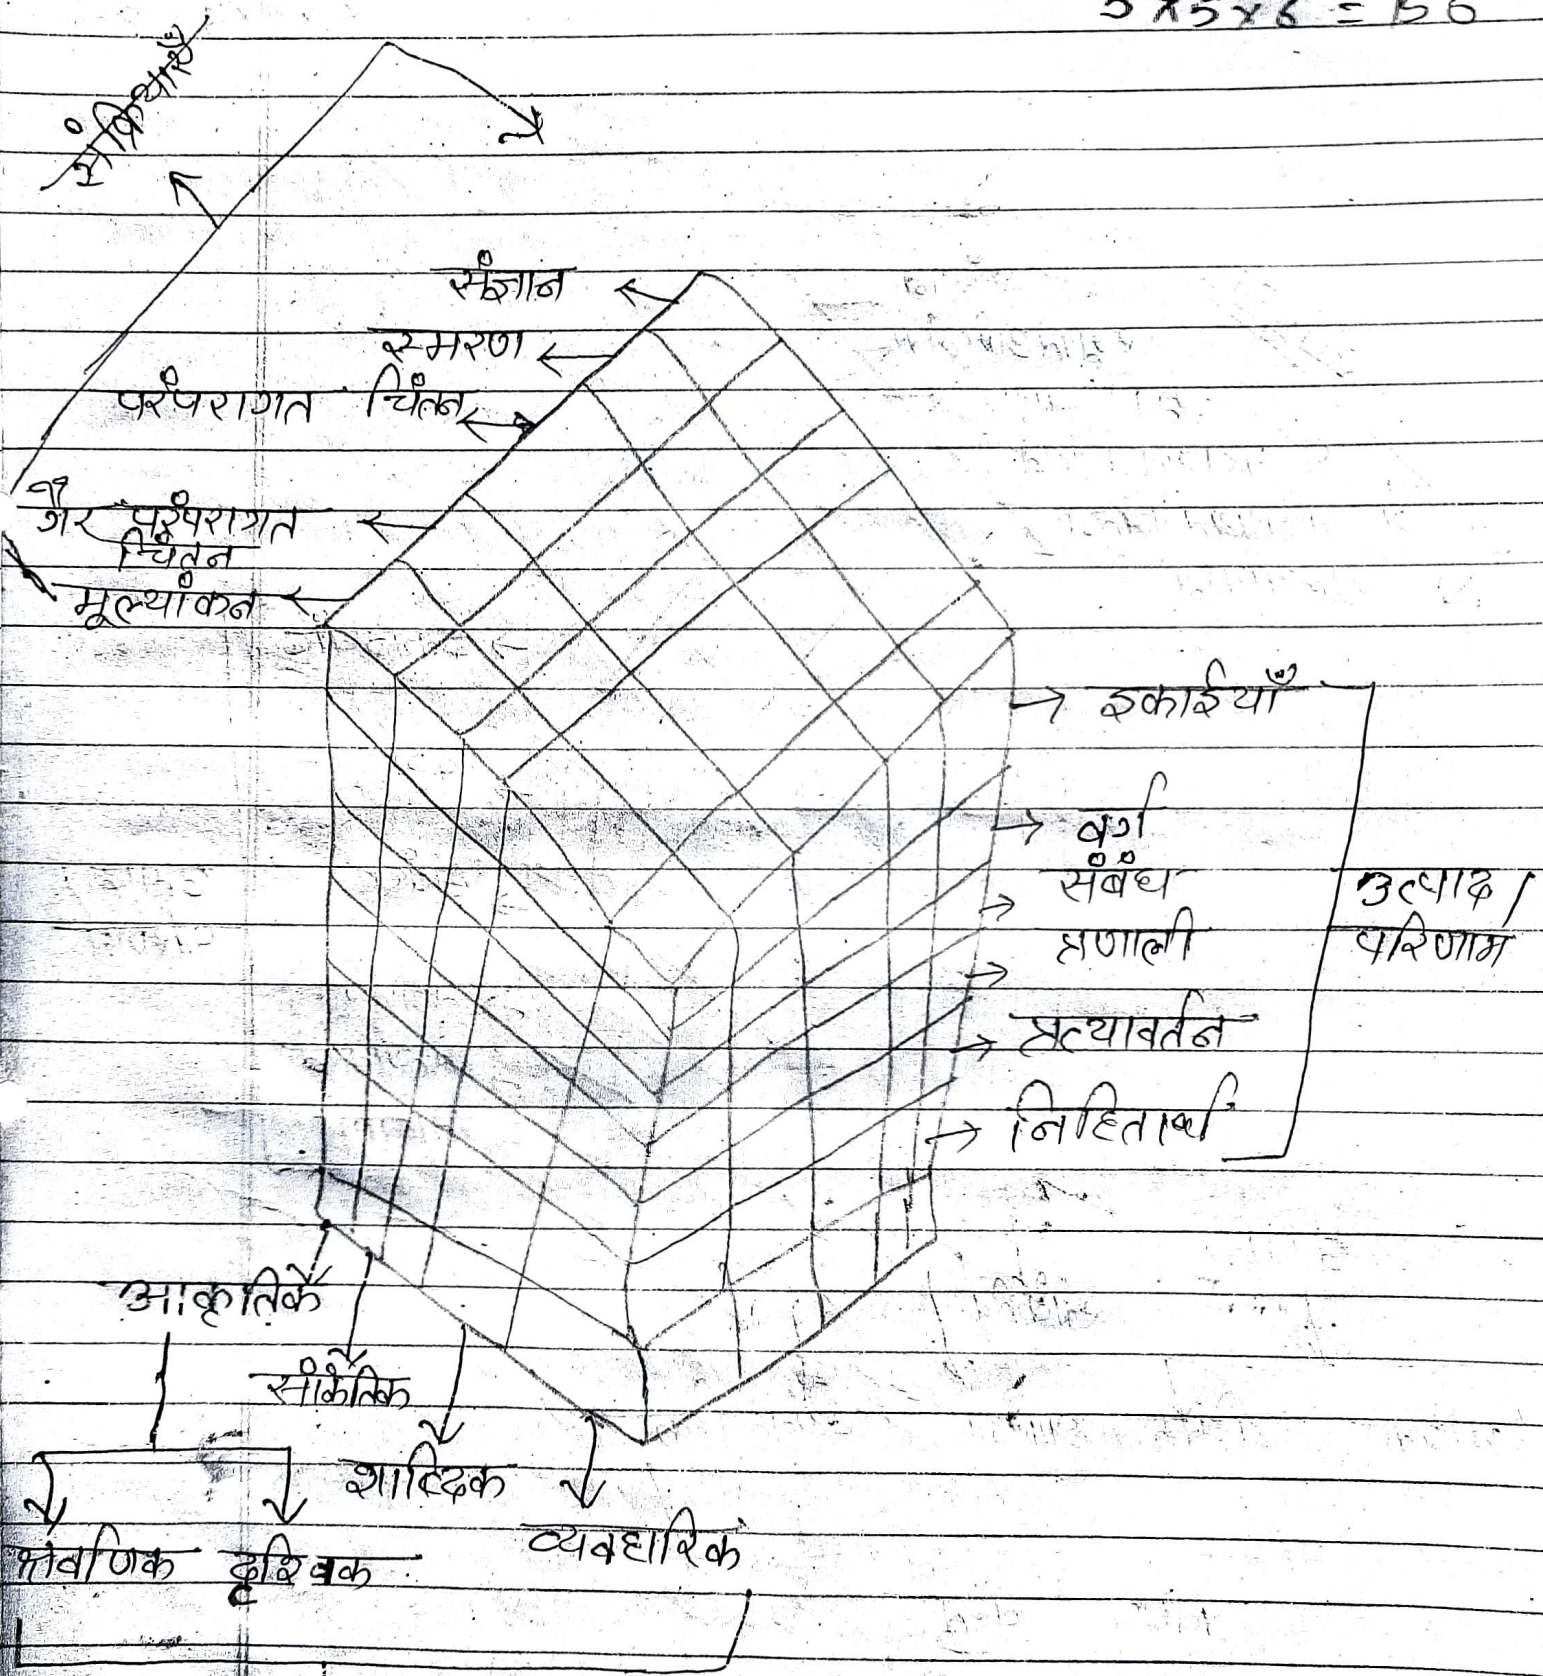 5 x 5 x 6 = 150
संक्रियाएँ
संज्ञान
स्मरण
परंपरागत चिंतन
गैर परंपरागत
चिंतन
मूल्यांकन
इकाईयाँ
वर्ग
संबंध
प्रणाली
उत्पाद/
परिणाम
प्रत्यावर्तन
निहितार्थ
आकृतिकै
सांकेतिक
शाब्दिक
व्यवहारिक
श्रवणिक दृश्यिक